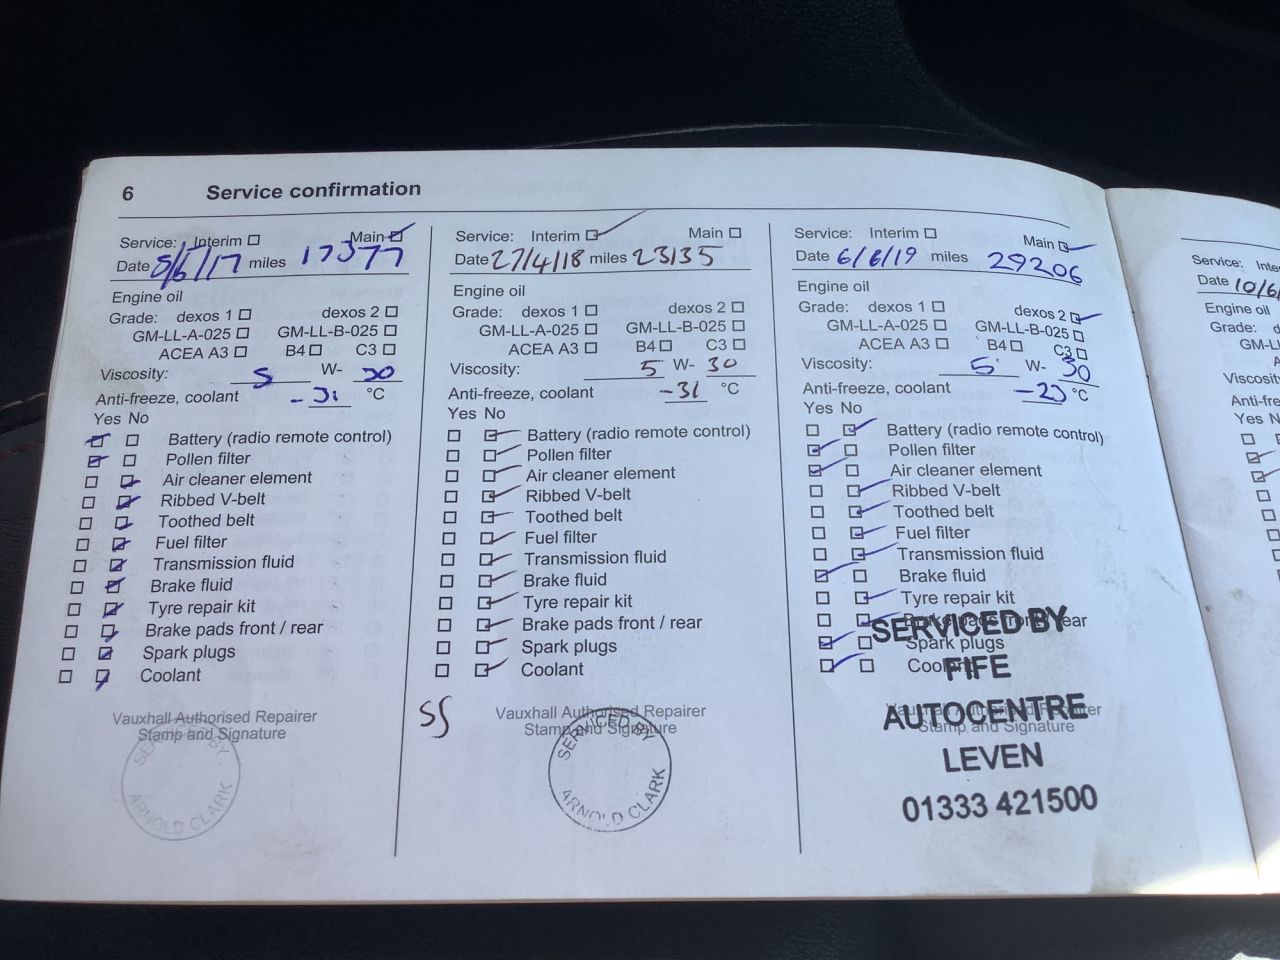 6 Service confirmation
Service: Interim Main
Date 5/6/17 miles 17377
Engine oil
Grade: dexos 1 dexos 2
GM-LL-A-025 GM-LL-B-025
ACEA A3 B4 C3
Viscosity: 5 W- 30
Anti-freeze, coolant -31 °C
Yes No
Battery (radio remote control)
Pollen filter
Air cleaner element
Ribbed V-belt
Toothed belt
Fuel filter
Transmission fluid
Brake fluid
Tyre repair kit
Brake pads front / rear
Spark plugs
Coolant
Vauxhall Authorised Repairer
Stamp and Signature
SERVICED BY
ARNOLD CLARK
Service: Interim Main
Date 27/4/18 miles 23135
Engine oil
Grade: dexos 1 dexos 2
GM-LL-A-025 GM-LL-B-025
ACEA A3 B4 C3
Viscosity: 5 W- 30
Anti-freeze, coolant -31 °C
Yes No
Battery (radio remote control)
Pollen filter
Air cleaner element
Ribbed V-belt
Toothed belt
Fuel filter
Transmission fluid
Brake fluid
Tyre repair kit
Brake pads front / rear
Spark plugs
Coolant
Vauxhall Authorised Repairer
Stamp and Signature
SERVICED BY
ARNOLD CLARK
Service: Interim Main
Date 6/6/19 miles 29206
Engine oil
Grade: dexos 1 dexos 2
GM-LL-A-025 GM-LL-B-025
ACEA A3 B4 C3
Viscosity: 5 W- 30
Anti-freeze, coolant °C
Yes No
Battery (radio remote control)
Pollen filter
Air cleaner element
Ribbed V-belt
Toothed belt
Fuel filter
Transmission fluid
Brake fluid
Tyre repair kit
Brake pads front / rear
Spark plugs
Coolant
Vauxhall Authorised Repairer
Stamp and Signature
SERVICED BY
FIFE
AUTOCENTRE
LEVEN
01333 421500
Service:
Date 10/6/
Engine oil
Yes No